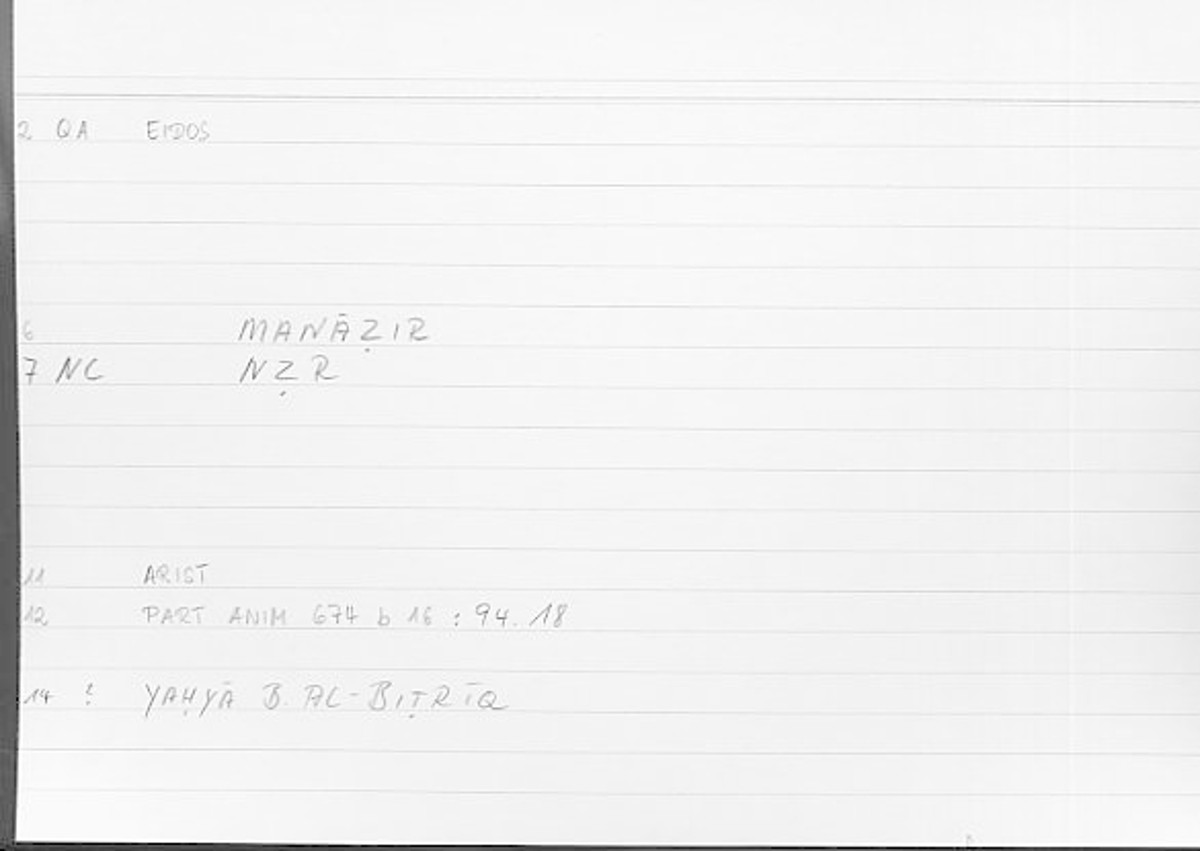 2 QA EIDOS
6 MANĀẒIR
7 NC NẒR
11 ARIST
12 PART ANIM 674 b 16 : 94.18
14 ? YAḤYĀ B. AL-BIṬRĪQ